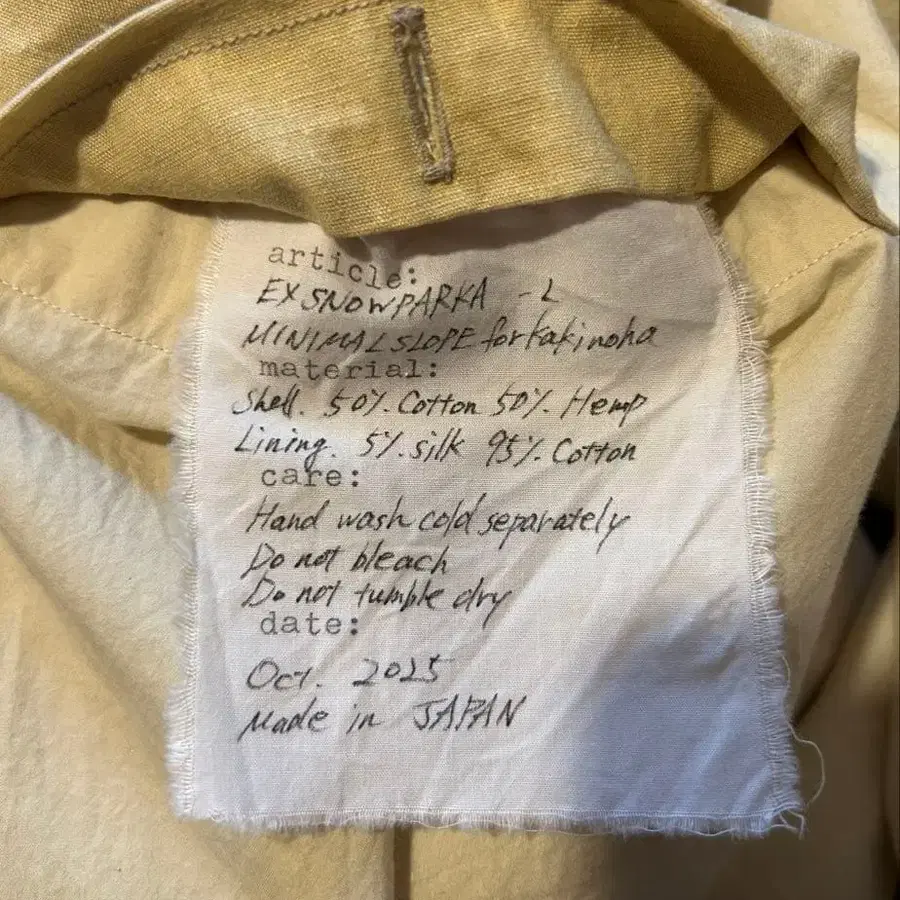 article:
EX SNOWPARKA - L
MINIMAL SLOPE for kakinoha
material:
Shell. 50%. Cotton 50%. Hemp
Lining. 5%. silk 95%. Cotton
care:
Hand wash cold separately
Do not bleach
Do not tumble dry
date:
Oct. 2025
Made in JAPAN